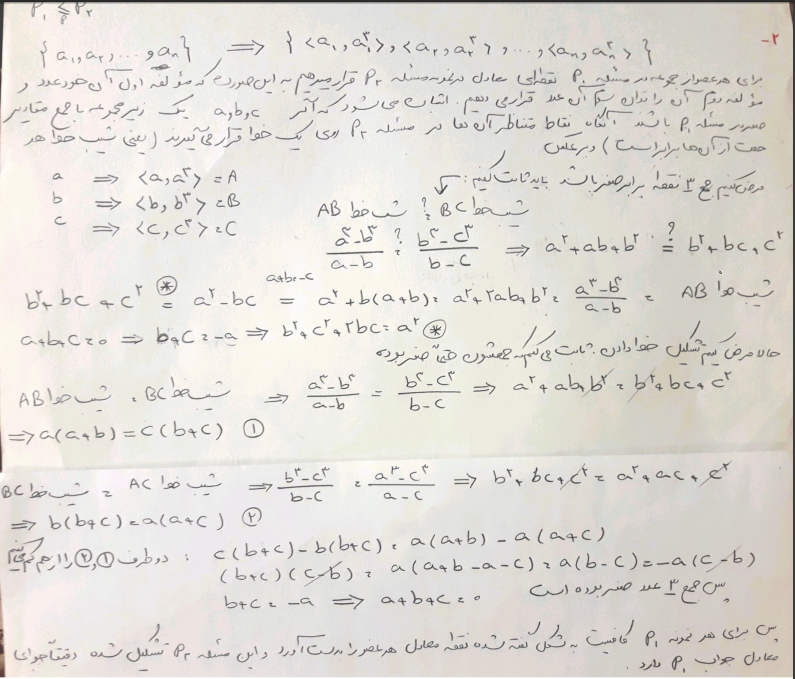 P₁ ≤ₚ P₂
۲-
{a₁, a₂, ..., aₙ} ⟹ {<a₁, a₁³>, <a₂, a₂³>, ..., <aₙ, aₙ³>}
برای هر عضو از مجموعه در مسئله P₁ نقطه‌ای معادل در نمونه مسئله P₂ قرار میدهیم به این صورت که مؤلفه اول آن خود عدد و
مؤلفه دوم آن را توان سوم آن عدد قرار می دهیم. اثبات می شود که اگر a,b,c یک زیرمجموعه با جمع
صفر در مسئله P₁ باشند آنگاه نقاط متناظر آن ها در مسئله P₂ روی یک خط قرار می گیرند (یعنی شیب خط هر
جفت از آن ها برابر است) و برعکس
فرض کنیم جمع ۳ نقطه برابر صفر باشد باید ثابت کنیم:
a ⟹ <a, a³> = A
b ⟹ <b, b³> = B
c ⟹ <c, c³> = C
شیب خط BC =? شیب خط AB
(a³-b³)/(a-b) =? (b³-c³)/(b-c) ⟹ a²+ab+b² =? b²+bc+c²
b²+bc+c² =⊛ a²-bc = a²+b(a+b) = a²+ab+b² = (a³-b³)/(a-b) = شیب خط AB
a+b=-c
a+b+c=0 ⟹ b+c=-a ⟹ b²+c²+2bc=a² ⊛
حالا فرض کنیم تشکیل خط دادن. ثابت می کنیم که جمعشون حتماً صفر بوده
شیب خط BC = شیب خط AB ⟹ (a³-b³)/(a-b) = (b³-c³)/(b-c) ⟹ a²+ab+b² = b²+bc+c²
⟹ a(a+b) = c(b+c) ①
شیب خط BC = شیب خط AC ⟹ (b³-c³)/(b-c) = (a³-c³)/(a-c) ⟹ b²+bc+c² = a²+ac+c²
⟹ b(b+c) = a(a+c) ②
دو طرف ① و ② را از هم کم می کنیم: c(b+c)-b(b+c) = a(a+b)-a(a+c)
(b+c)(c-b) = a(a+b-a-c) = a(b-c) = -a(c-b)
b+c=-a ⟹ a+b+c=0 پس جمع ۳ عدد صفر بوده است
پس برای هر نمونه P₁ کافیست به شکل گفته شده نقطه معادل هر عضو را بدست آورد و این مسئله P₂ تشکیل شده دقیقاً جوابی
معادل جواب P₁ دارد.